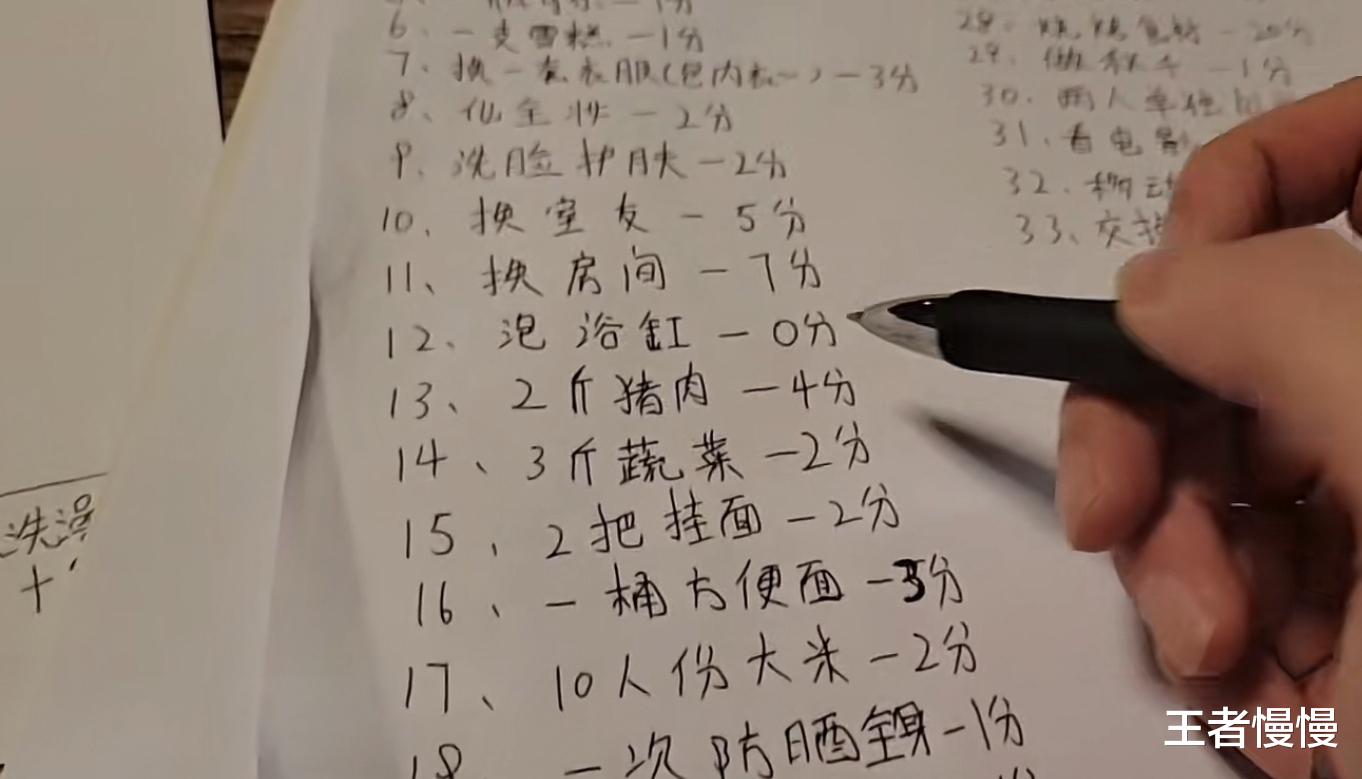 6、一支雪糕-1分
7、换一套衣服(包内衣~)-3分
8、化全妆-2分
9、洗脸护肤-2分
10、换室友-5分
11、换房间-7分
12、泡浴缸-0分
13、2斤猪肉-4分
14、3斤蔬菜-2分
15、2把挂面-2分
16、一桶方便面-3分
17、10人份大米-2分
18、一次防晒全身-1分
28、烧烤食材-20分
29、做秋千-1分
30、两人单独
31、看电影
32、
33、交换
洗澡
+
王者慢慢